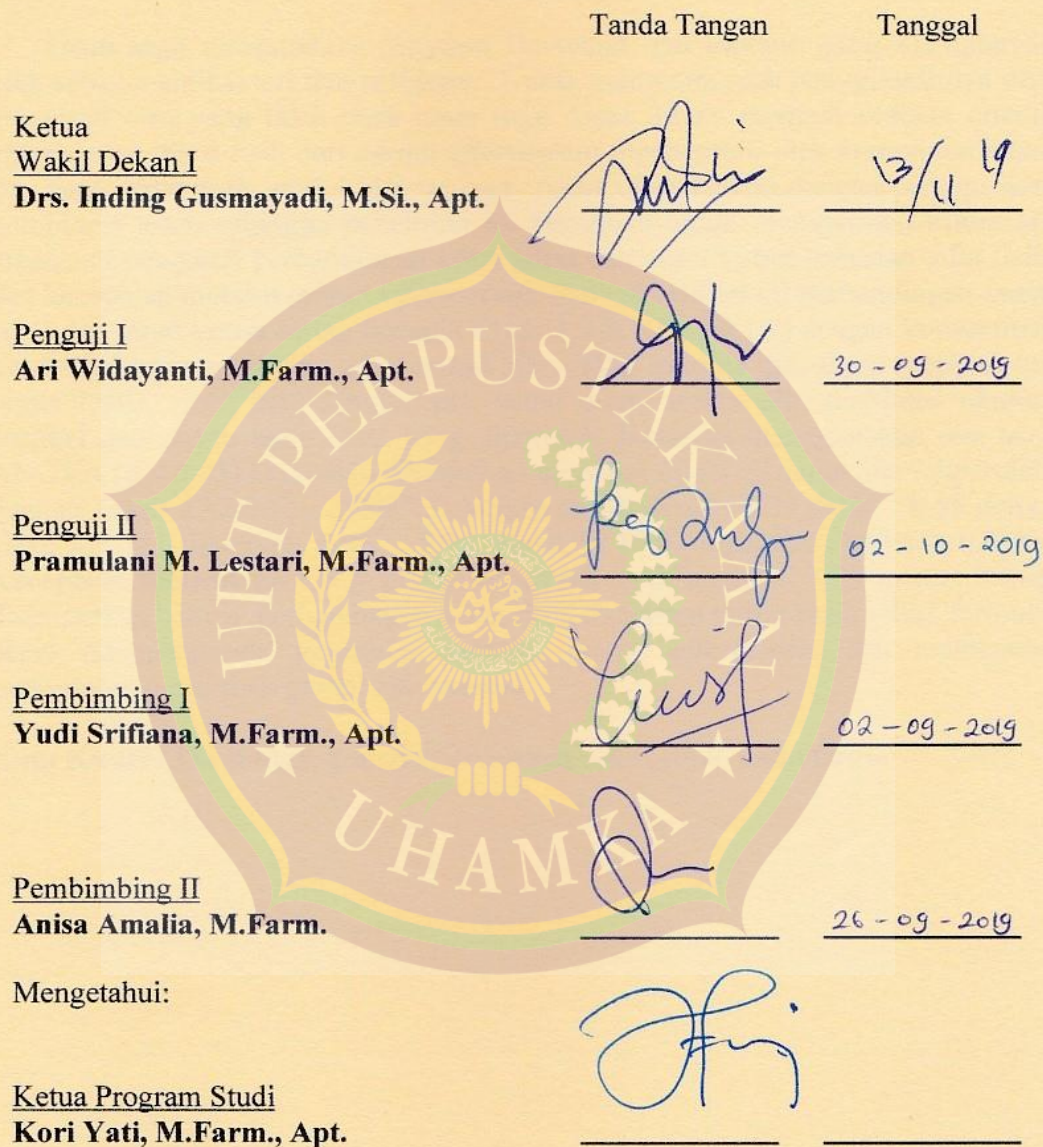 Tanda Tangan Tanggal
Ketua
Wakil Dekan I
Drs. Inding Gusmayadi, M.Si., Apt.
13/11 19
Penguji I
Ari Widayanti, M.Farm., Apt.
30 - 09 - 2019
Penguji II
Pramulani M. Lestari, M.Farm., Apt.
02 - 10 - 2019
Pembimbing I
Yudi Srifiana, M.Farm., Apt.
02 - 09 - 2019
Pembimbing II
Anisa Amalia, M.Farm.
26 - 09 - 2019
Mengetahui:
Ketua Program Studi
Kori Yati, M.Farm., Apt.
UPT PERPUSTAKAAN
UHAMKA